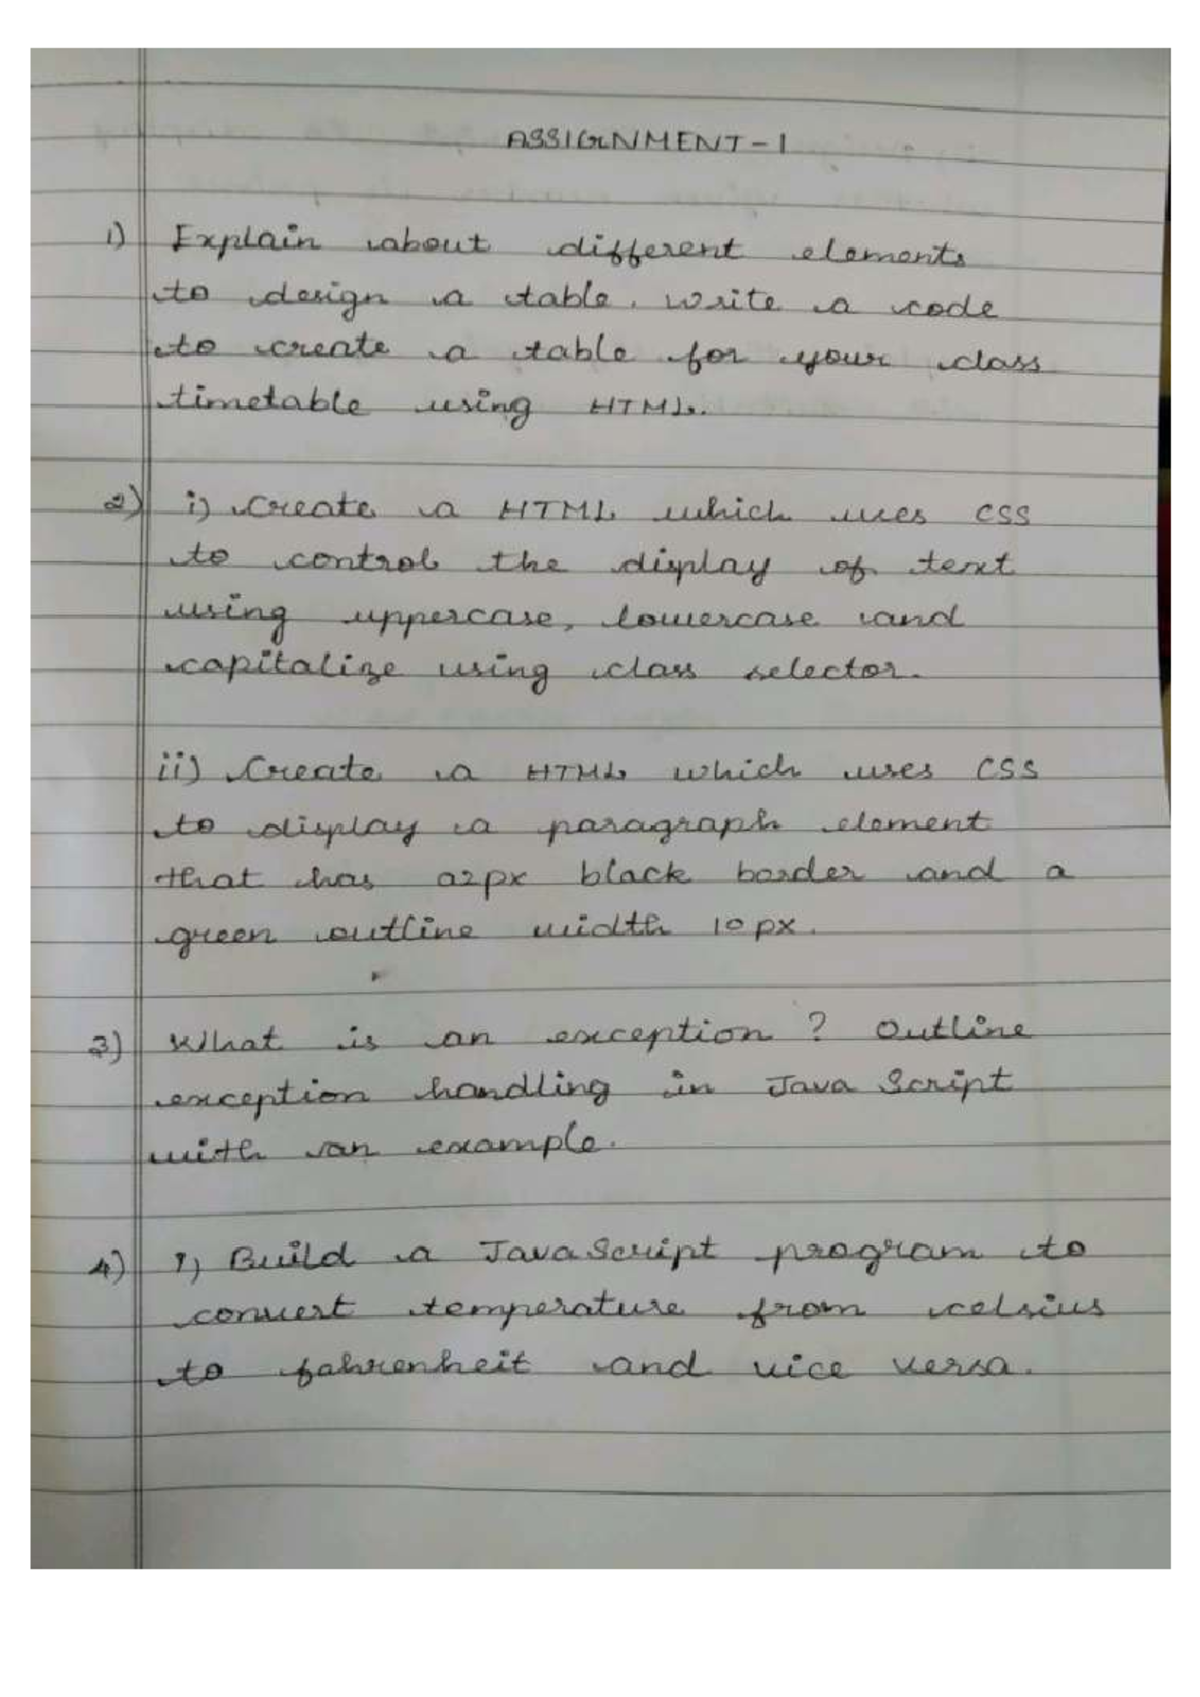 ASSIGNMENT-1
1) Explain about different elements
to design a table. write a code
to create a table for your class
timetable using HTML.
2) i) Create a HTML which uses CSS
to control the display of text
using uppercase, lowercase and
capitalize using class selector.
ii) Create a HTML which uses CSS
to display a paragraph element
that has a2px black border and a
green outline width 10px.
3) What is an exception? Outline
exception handling in Java Script
with an example.
4) 1) Build a JavaScript program to
convert temperature from celsius
to fahrenheit and vice versa.